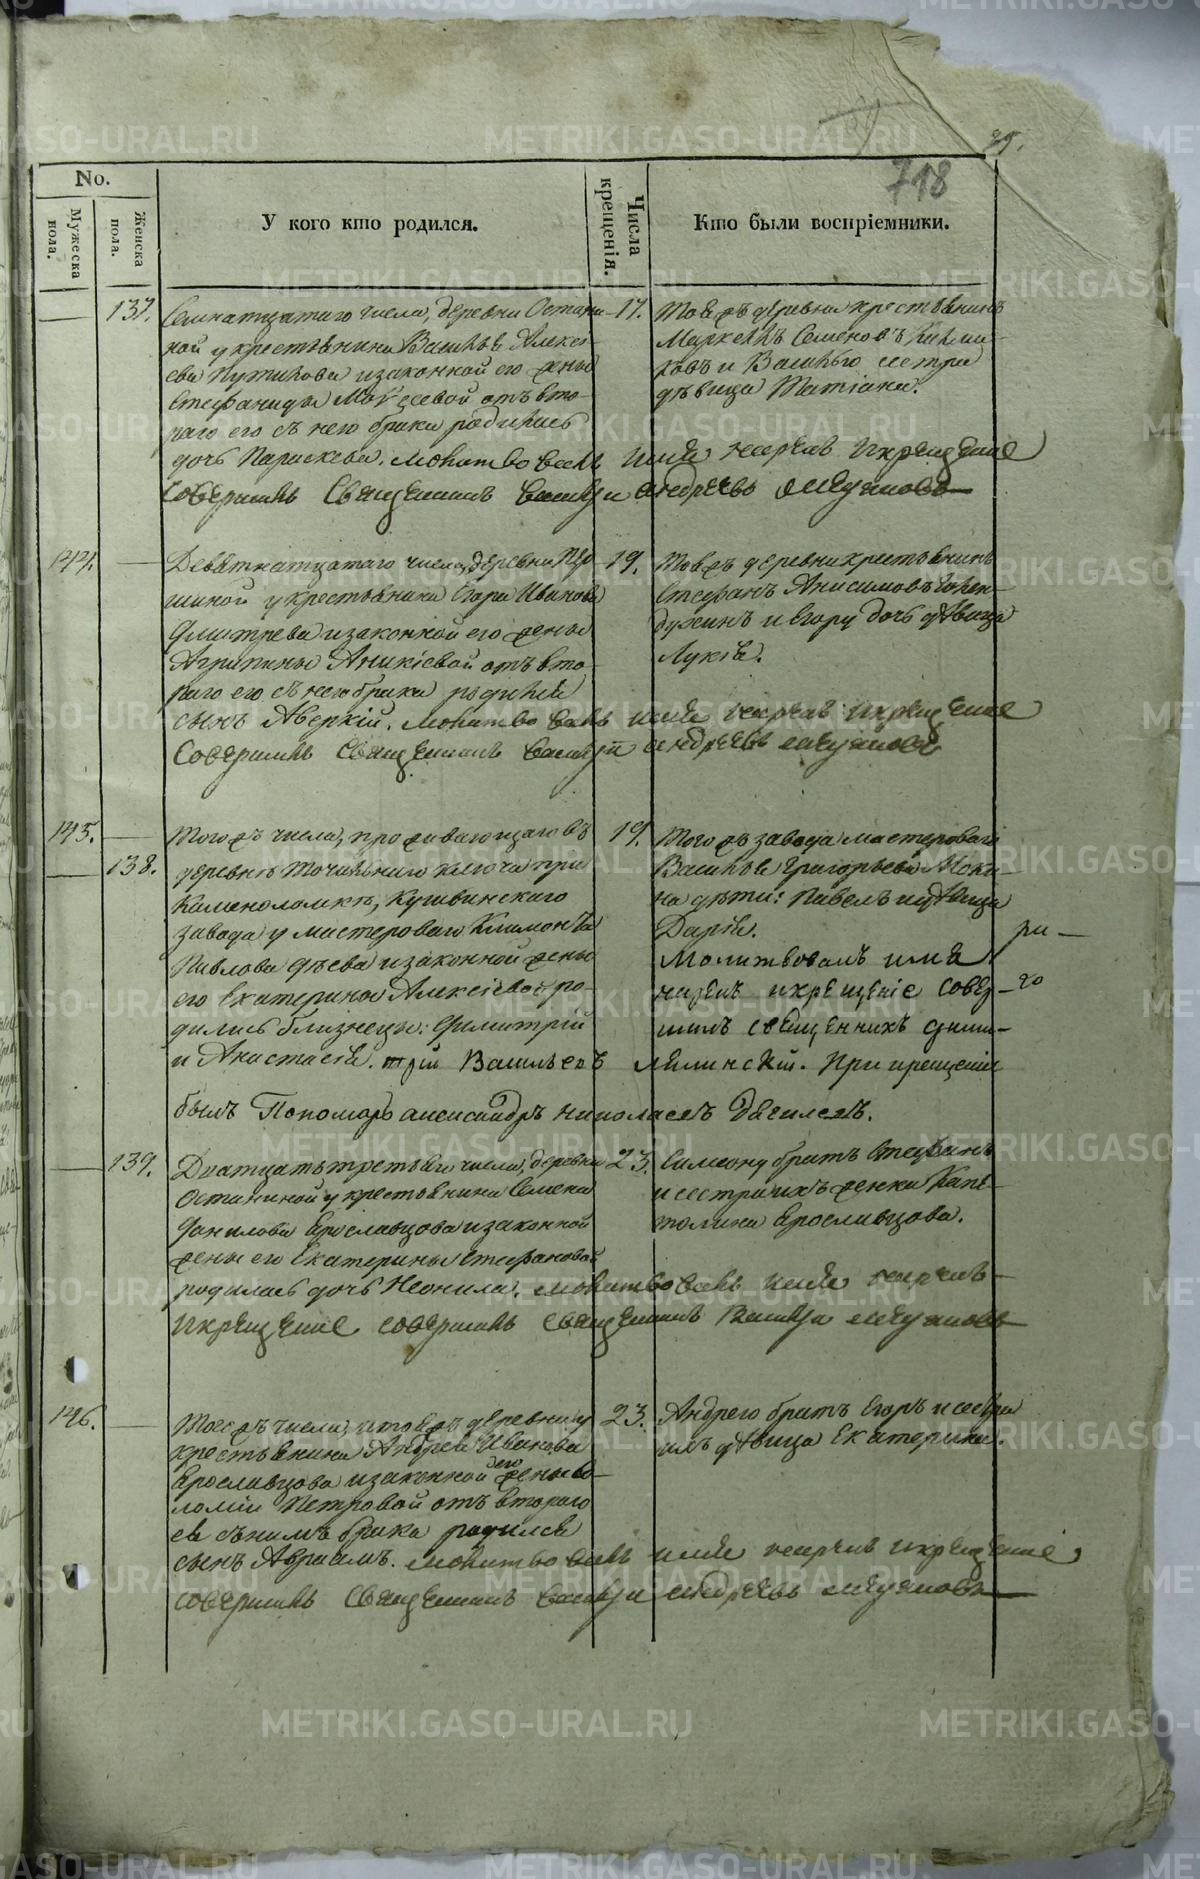 718
No.
Мужеска пола.
Женска пола.
У кого кто родился.
Числа крещенія.
Кто были воспріемники.
137.
Семнатцатаго числа, деревни Остани-
ной у крестьянина Василья Алексі-
ева Путилова и законной его жены
Стефаниды Моѵсеевой отъ вто-
раго его съ нею брака родилась
дочь Параскева. молитвовалъ имя нарекъ и крещеніе
совершилъ Священникъ Василій Андреевъ
17.
Тояжъ деревни крестьянинъ
Маркеллъ Семеновъ
и Василья сестра
дѣвица Татіана.
144.
Девятнатцатаго числа, деревни Пер-
шиной у крестьянина Егора Иванова
и законной его жены
Агрипины Аникіевой отъ вто-
раго его съ нею брака родился
сынъ Аверкій. молитвовалъ имя нарекъ и крещеніе
совершилъ Священникъ Василій Андреевъ
19.
Тояжъ деревни крестьянинъ
Стефанъ Анисимовъ
и Егору дочь дѣвица
Лукія.
145.
138.
Тогожъ числа, проживающаго въ
деревнѣ Точильнаго ключа при
Каменоломкѣ, Кушвинскаго
завода у мастероваго Климонта
Павлова и законной жены
его Екатерины Алексіевой ро-
дились близнецы: Димитрій
и Анастасія.
19.
Тогожъ завода мастероваго
Василья Григорьева Моки-
на дѣти: Павелъ и дѣвица
Дарія.
Молитвовалъ имя
нарекъ и крещеніе совер-
шилъ священникъ Дими-
трій Васильевъ
При крещеніи
былъ Пономарь Александръ Николаевъ
139.
Дватцать третьяго числа, деревни
Останиной у крестьянина Семена
Данилова Ярославцова и законной
жены его Екатерины Стефановой
родилась дочь Неонила. молитвовалъ имя нарекъ
и крещеніе совершилъ священникъ Василій
23.
Симеону братъ Стефанъ
и сестра ихъ женка Капи-
толина Ярославцова.
146.
Тогожъ числа, и тояжъ деревни у
крестьянина Андрея Иванова
Ярославцова и законной его жены Со-
ломіи Петровой отъ втораго
ея съ нимъ брака родился
сынъ Авраамъ. молитвовалъ имя нарекъ и крещеніе
совершилъ Священникъ Василій Андреевъ
23.
Андрею братъ Егоръ и сестра
имъ дѣвица Екатерина.
METRIKI.GASO-URAL.RU